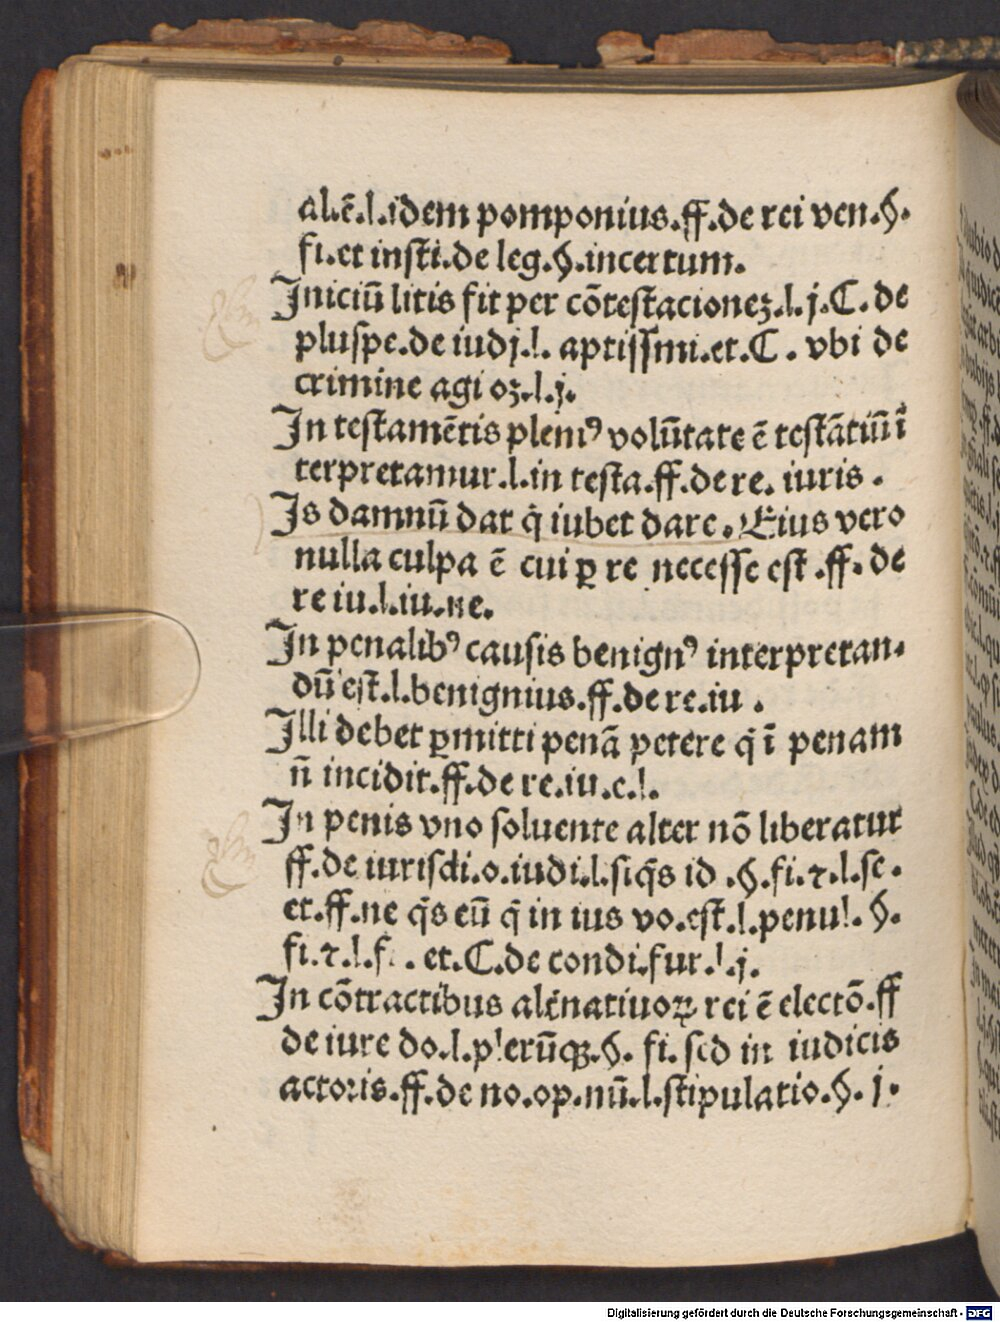 al.ē.l.idem pomponius.ff.de rei ven.§.
fi.et insti.de leg.§.incertum.
Iniciū litis fit per cōtestacionez.l.j.C.de
pluspe.de iudj.l. aptissmi.et.C. vbi de
crimine agi oꝫ.l.j.
In testamētis pleniꝰ volūtate ē testātiū ī
terpretamur.l.in testa.ff.de re. iuris.
Is damnū dat q̇ iubet dare. Eius vero
nulla culpa ē cui ꝑ re necesse est.ff. de
re iu.l.iu.ne.
In penalibꝰ causis benignꝰ interpretan-
dū est.l.benignius.ff.de re.iu.
Illi debet ꝑmitti penā petere q̇ ī penam
n̄ incidit.ff.de re.iu.e.l.
In penis vno soluente alter nō liberatur
ff.de iurisdi.o.iudi.l.siq̄s id.§.fi.⁊.l.se.
et.ff.ne q̄s eū q̇ in ius vo.est.l.penul.§.
fi.⁊.l.f. . et.C.de condi.fur.l.j.
In cōtractibus alēnatiuoꝝ rei ē electō.ff
de iure do.l.plerūqꝫ.§. fi. sed in iudicis
actoris.ff.de no.op.nū.l.stipulatio.§. j.
Digitalisierung gefördert durch die Deutsche Forschungsgemeinschaft - DFG